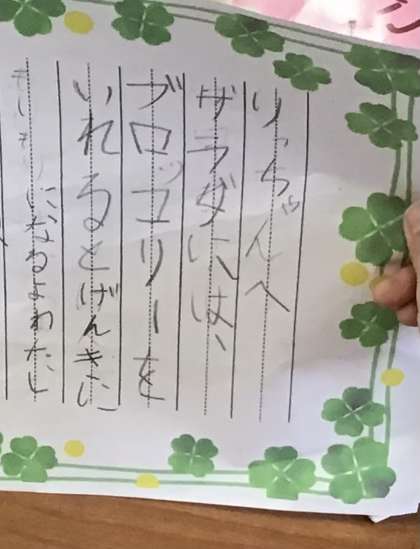 りっちゃんへ
サラダには、
ブロッコリーを
いれるとげんきに
になるよわたし